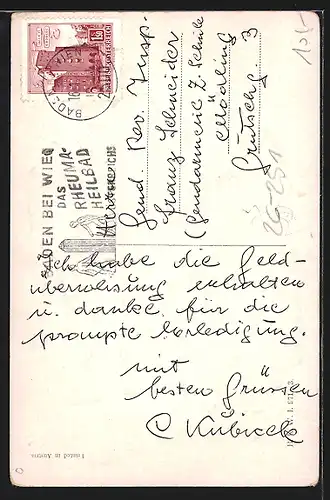 1,50
REPUBLIK ÖSTERREICH
BADEN BEI WIEN
DAS
RHEUMA-
HEILBAD
ÖSTERREICHS
Herrn
Gend. Rev. Insp.
Franz Schneider
(Gendarmerie Z. Schule
Mödling
Grutschg. 3
Ich habe die Geld-
überweisung erhalten
u. danke für die
prompte Erledigung.
mit
besten Grüssen
C Kubicek
Printed in Austria